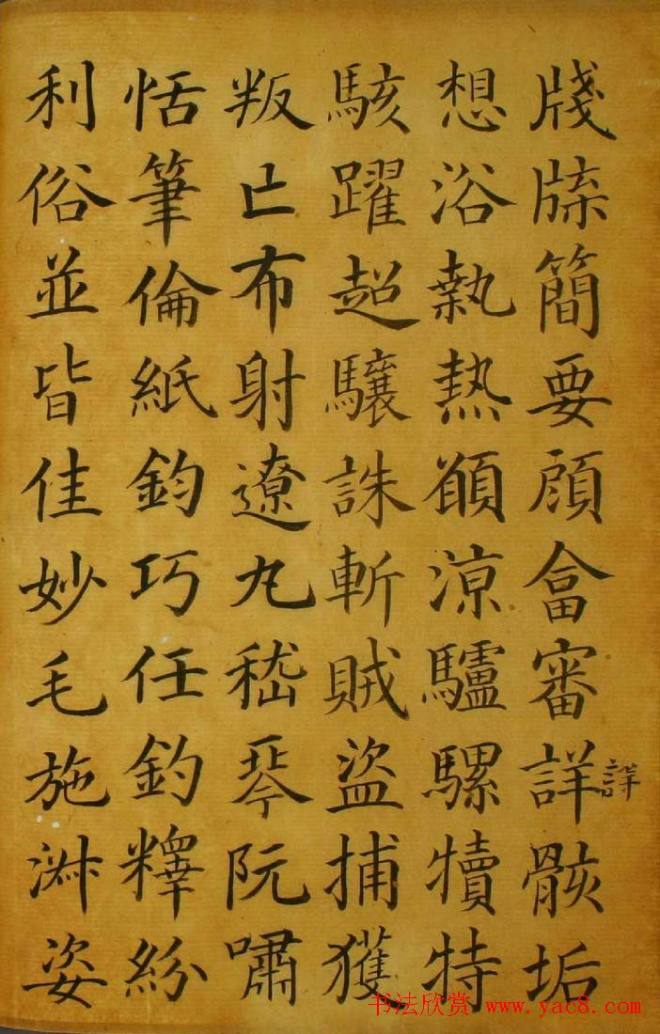 牋牒簡要顧畣審詳骸垢
詳
想浴執熱願涼驢騾犢特
駭躍超驤誅斬賊盜捕獲
叛亡布射遼丸嵇琴阮嘯
恬筆倫紙鈞巧任釣釋紛
利俗並皆佳妙毛施淑姿
书法欣赏 www.yac8.com